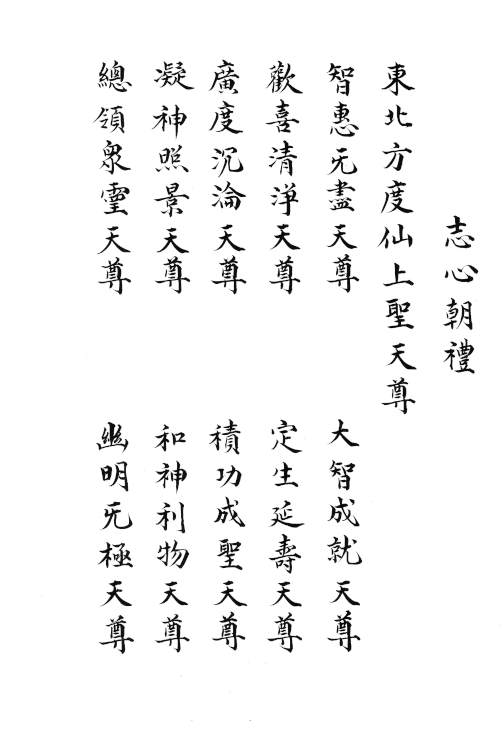 志心朝禮
東北方度仙上聖天尊
智惠无盡天尊 大智成就天尊
歡喜清淨天尊 定生延壽天尊
廣度沉淪天尊 積功成聖天尊
凝神照景天尊 和神利物天尊
總領衆靈天尊 幽明无極天尊